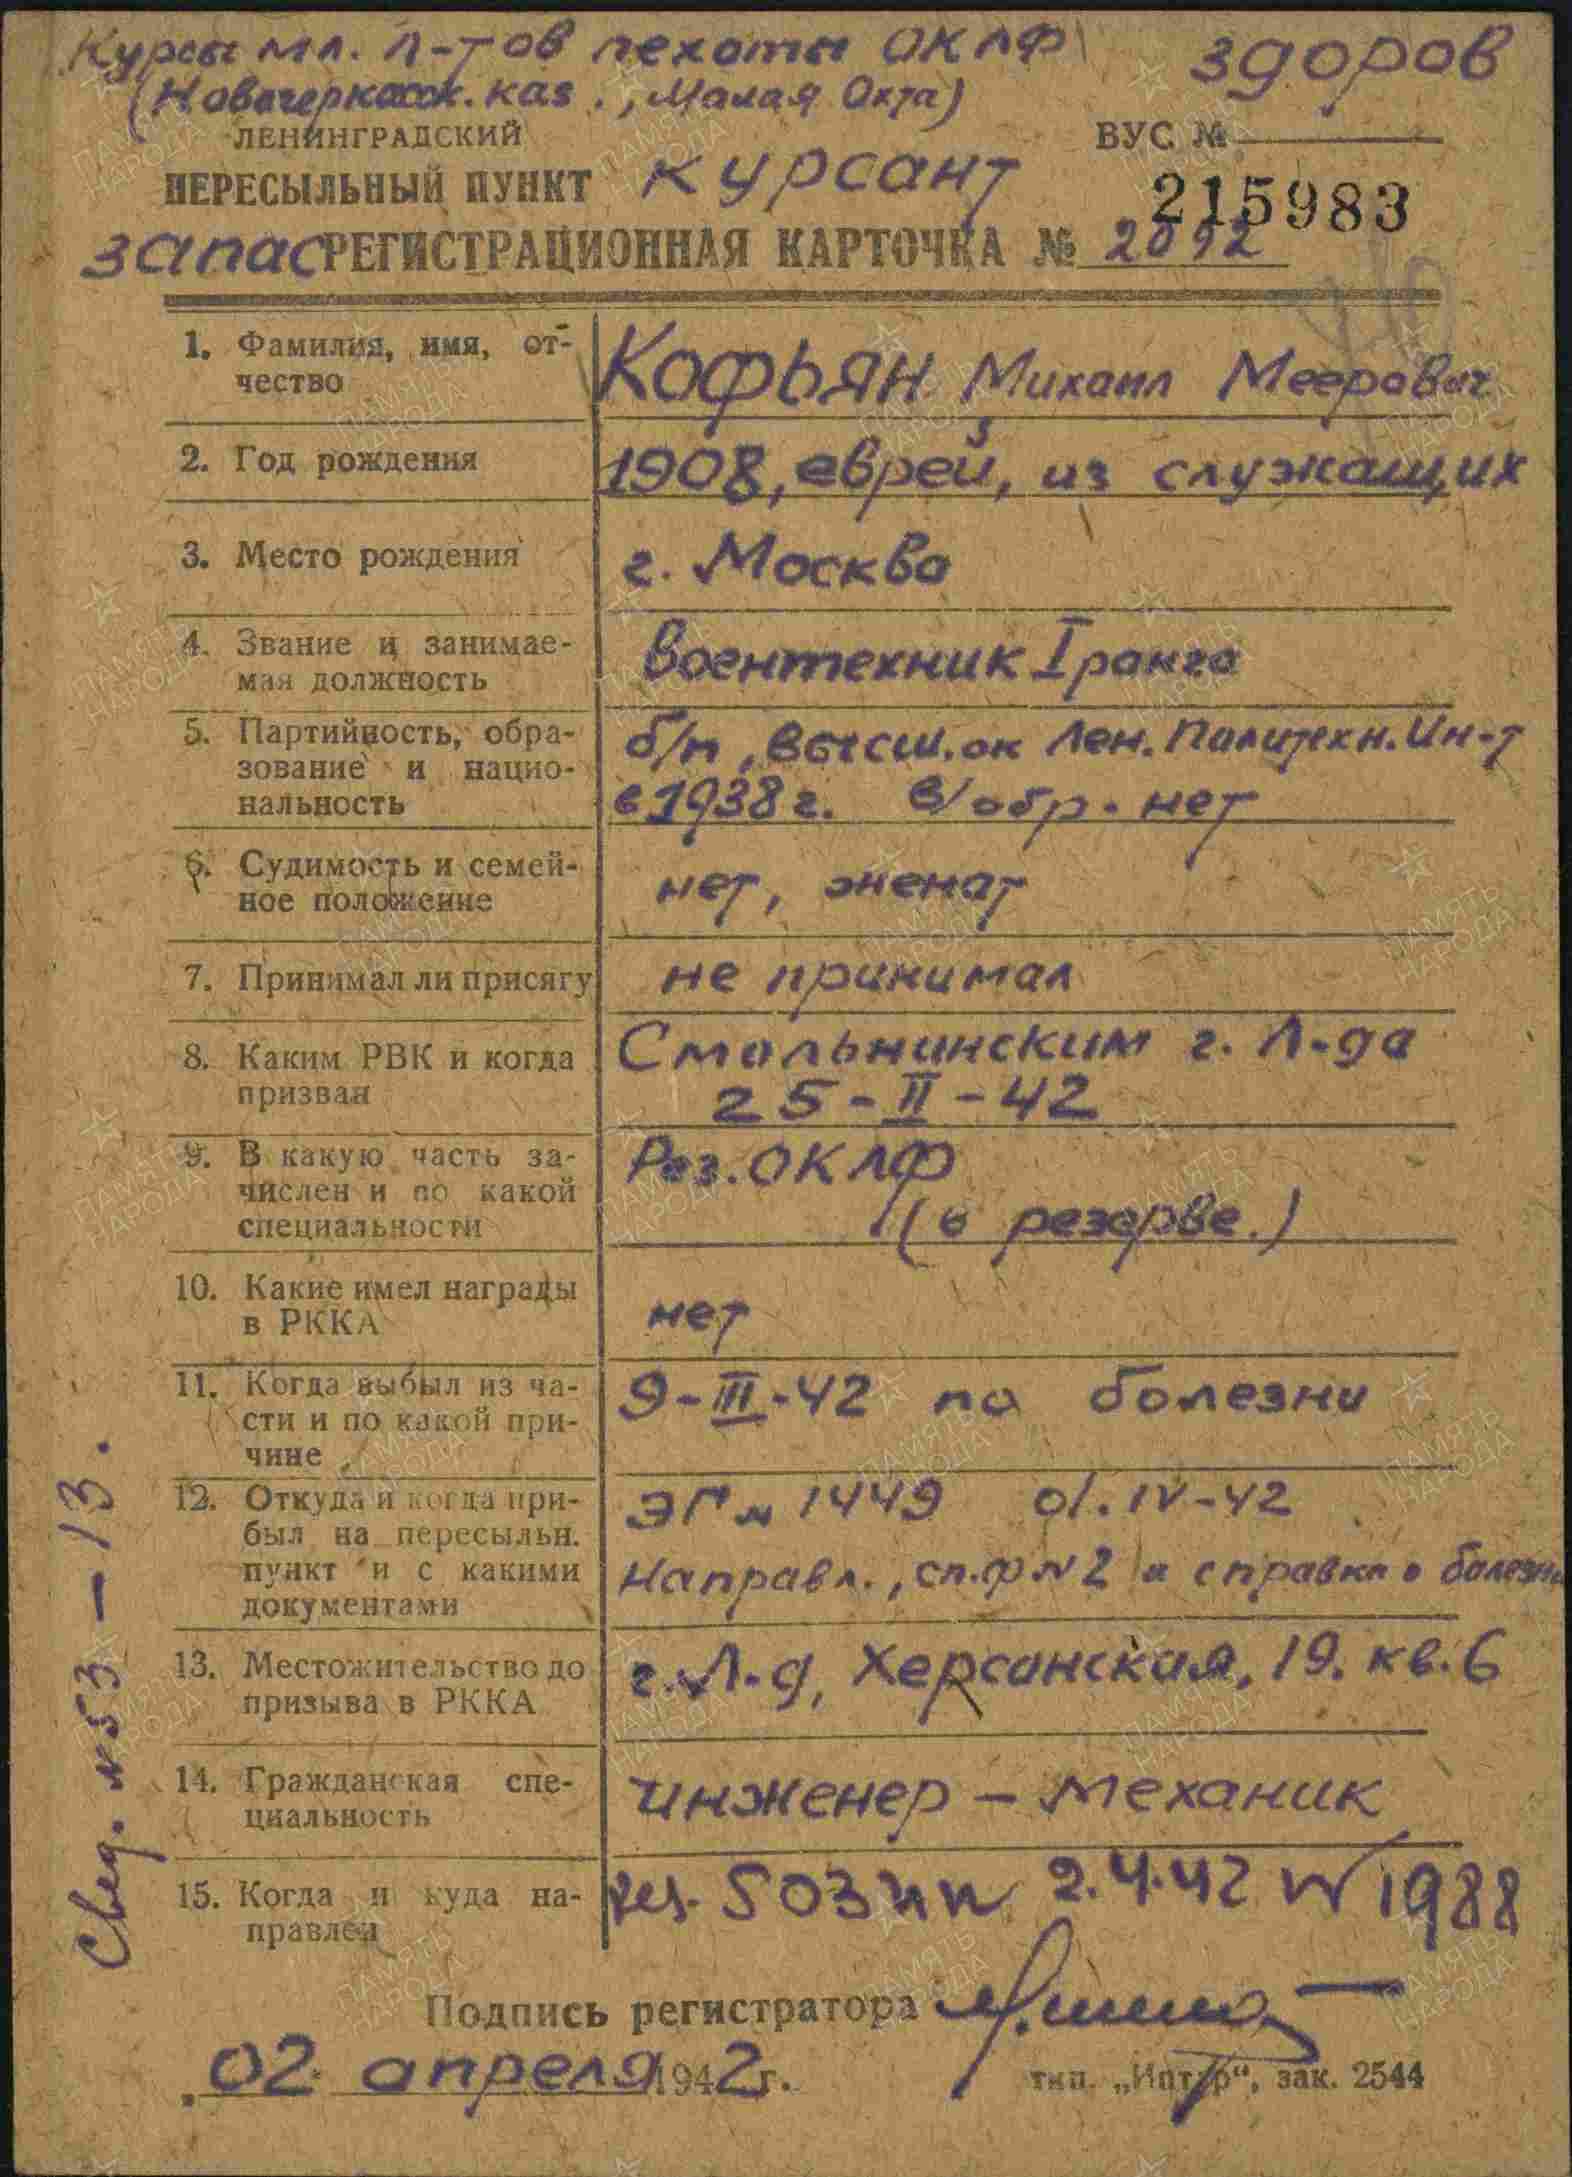 Курсы мл. л-тов пехоты ОКЛФ
здоров
(Новочеркасск. каз., Малая Охта)
ЛЕНИНГРАДСКИЙ
ВУС №
ПЕРЕСЫЛЬНЫЙ ПУНКТ курсант
215983
запас РЕГИСТРАЦИОННАЯ КАРТОЧКА № 2092
1. Фамилия, имя, от-
чество
Кофьян Михаил Меерович
2. Год рождения
1908, еврей, из служащих
3. Место рождения
г. Москва
4. Звание и занимае-
мая должность
Воентехник I ранга
5. Партийность, обра-
зование и нацио-
нальность
б/п, высш. ок Лен. Политехн. Ин-т
в 1938 г. В/обр. нет
6. Судимость и семей-
ное положение
нет, женат
7. Принимал ли присягу
не принимал
8. Каким РВК и когда
призван
Смольнинским г. Л-да
25-II-42
9. В какую часть за-
числен и по какой
специальности
Рез. ОКЛФ
(в резерве.)
10. Какие имел награды
в РККА
нет
11. Когда выбыл из ча-
сти и по какой при-
чине
9-III-42 по болезни
12. Откуда и когда при-
был на пересыльн.
пункт и с какими
документами
ЭГ № 1449 01.IV-42
Направл., сп. ф № 2 и справка о болезни
13. Местожительство до
призыва в РККА
г. Л-д, Херсонская, 19. кв. 6
14. Гражданская спе-
циальность
инженер - механик
15. Когда и куда на-
правлен
рез. 503 пп 2.4.42 № 1988
Свед. № 53-13.
Подпись регистратора
02 апреля 1942 г.
тип. „Иптар“, зак. 2544
ПАМЯТЬ НАРОДА